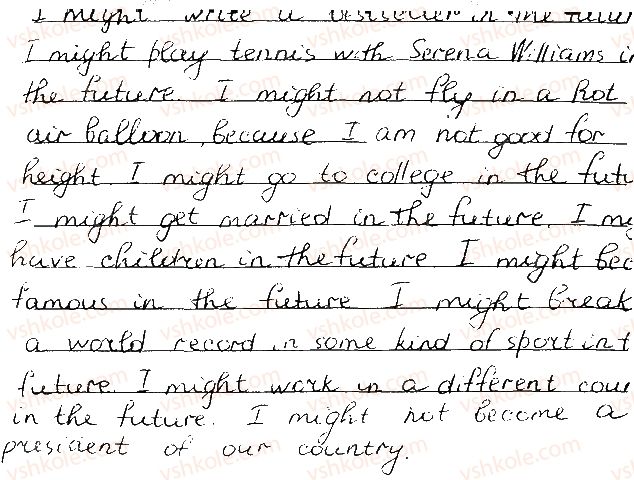 I might write a bestseller in the futur
I might play tennis with Serena Williams in
the future. I might not fly in a hot
air balloon, because I am not good for
height. I might go to college in the futu
I might get married in the future. I mig
have children in the future. I might bec
famous in the future. I might break
a world record in some kind of sport in t
future. I might work in a different coun
in the future. I might not become a
president of our country.